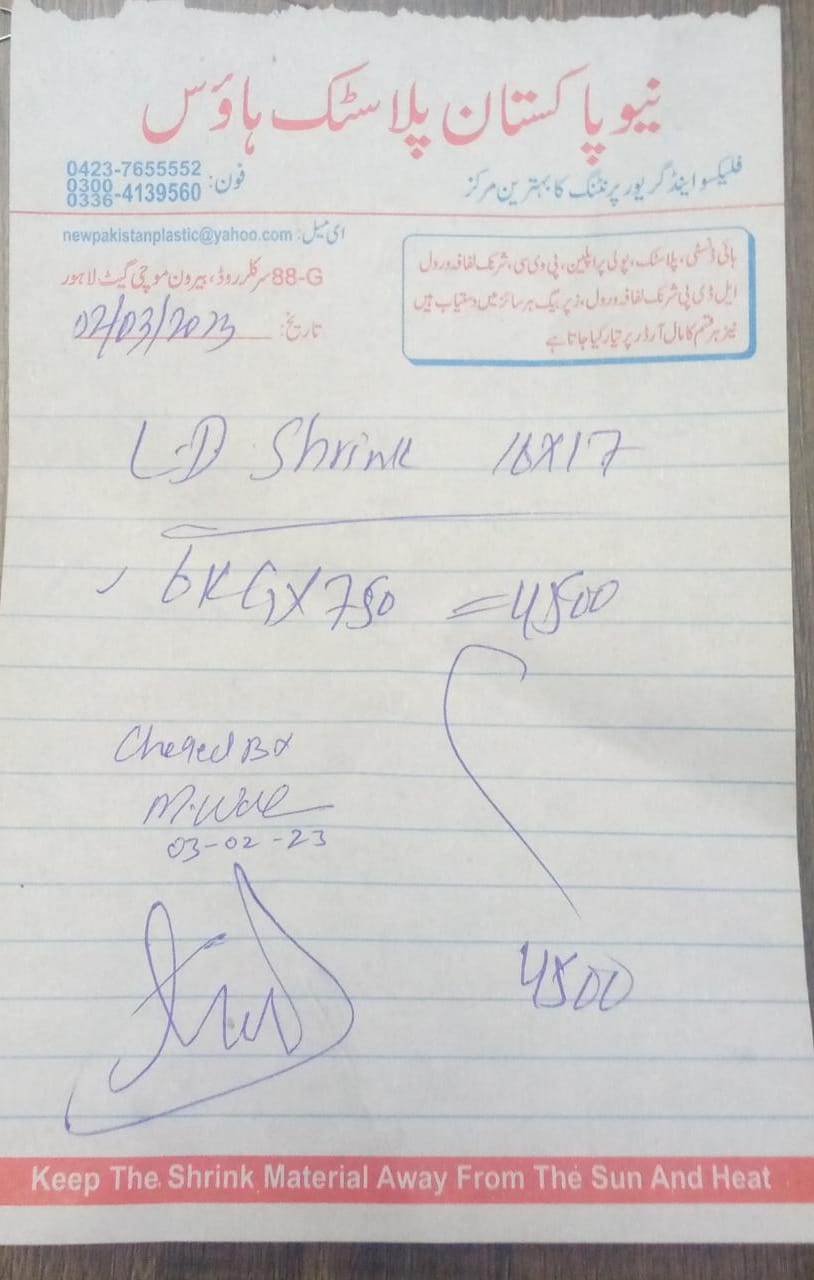 نیو پاکستان پلاسٹک ہاؤس
فلیکسو اینڈ گریور پرنٹنگ کا بہترین مرکز
فون: 0423-7655552
0300
0336-4139560
ای میل: newpakistanplastic@yahoo.com
88-G سرکلر روڈ، بیرون موچی گیٹ لاہور
تاریخ: 02/03/2023
ہائی ڈنسٹی، پلاسٹک، پولی پراپلین، پی وی سی، شرنک لفافہ و رول
ایل ڈی پی شرنک لفافہ و رول، زپر بیگ ہر سائز میں دستیاب ہیں
نیز ہر قسم کا مال آرڈر پر تیار کیا جاتا ہے
L.D Shrink 16X17
6KGX750 =4500
Cheqed By
03-02-23
4500
Keep The Shrink Material Away From The Sun And Heat